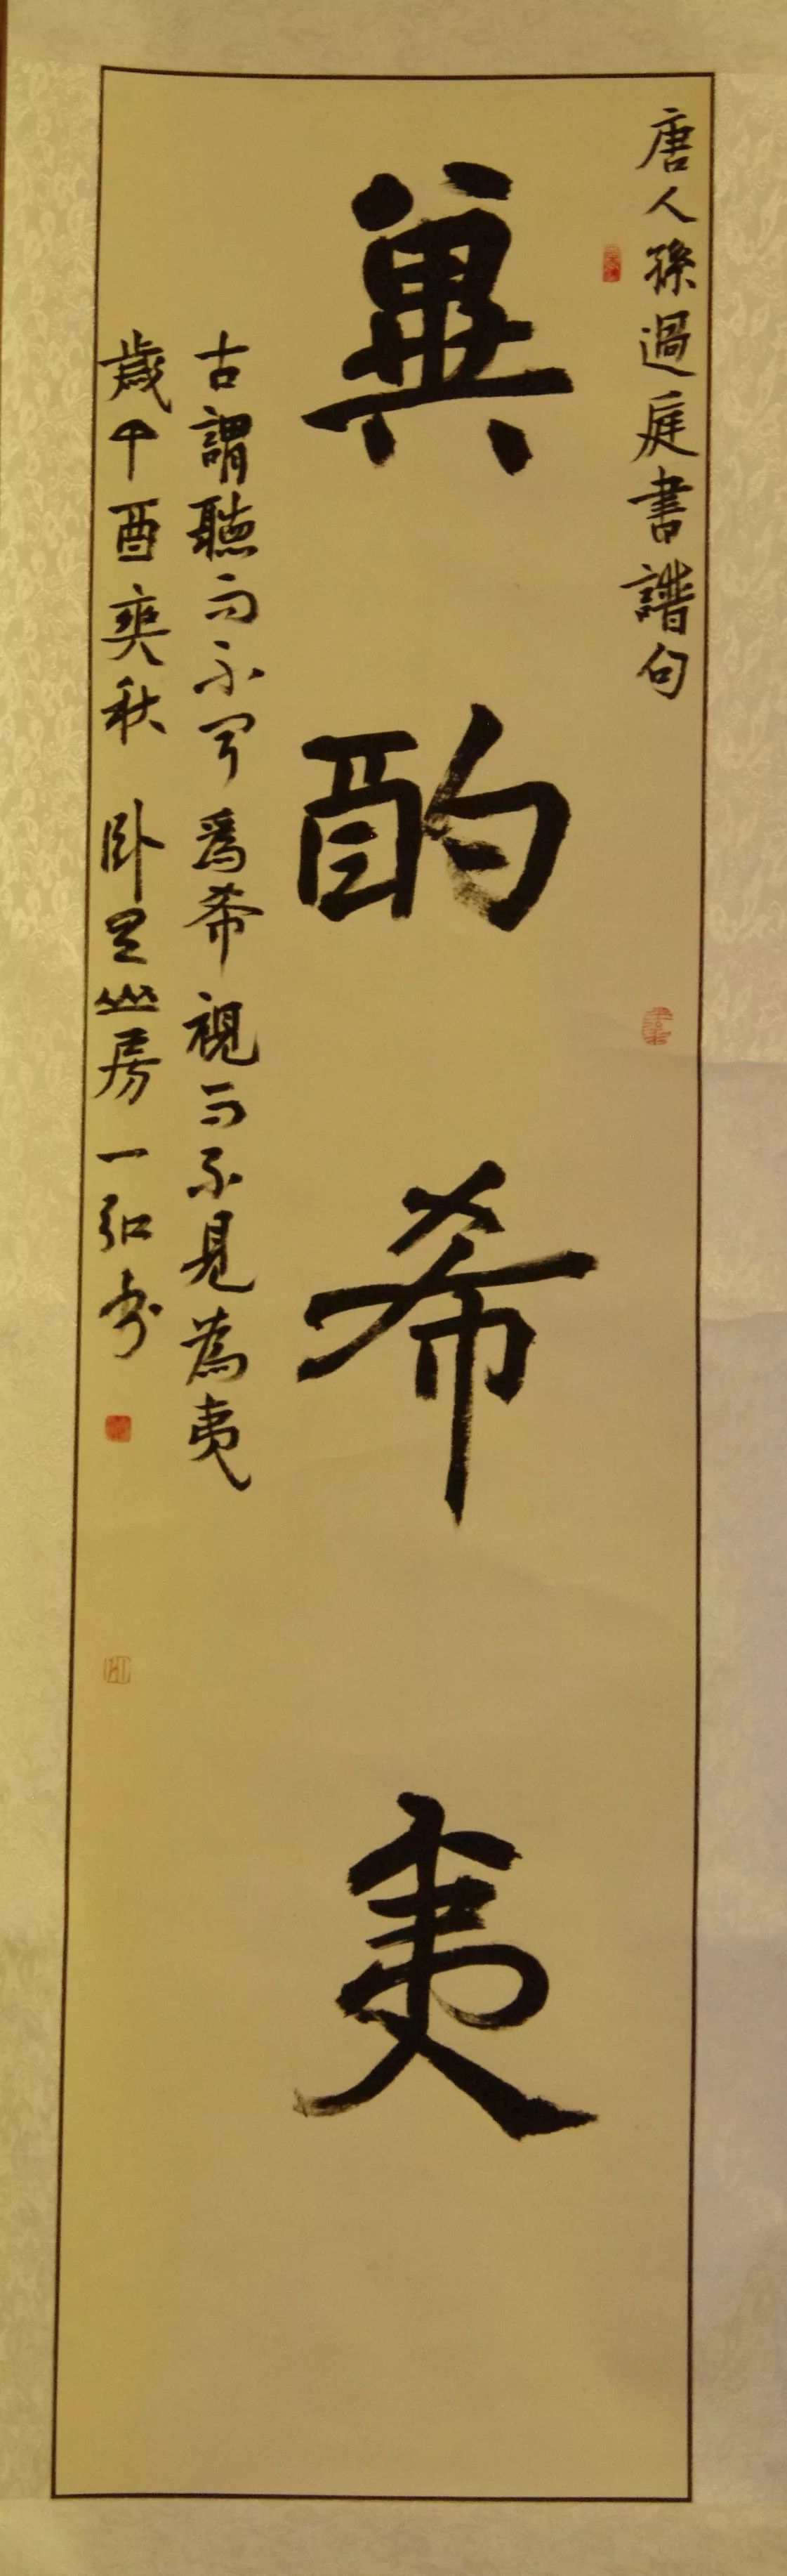 唐人孫過庭書譜句
冀酌希夷
古謂聽而不聞爲希視而不見為夷
歲丁酉爽秋 卧山房 一弘書